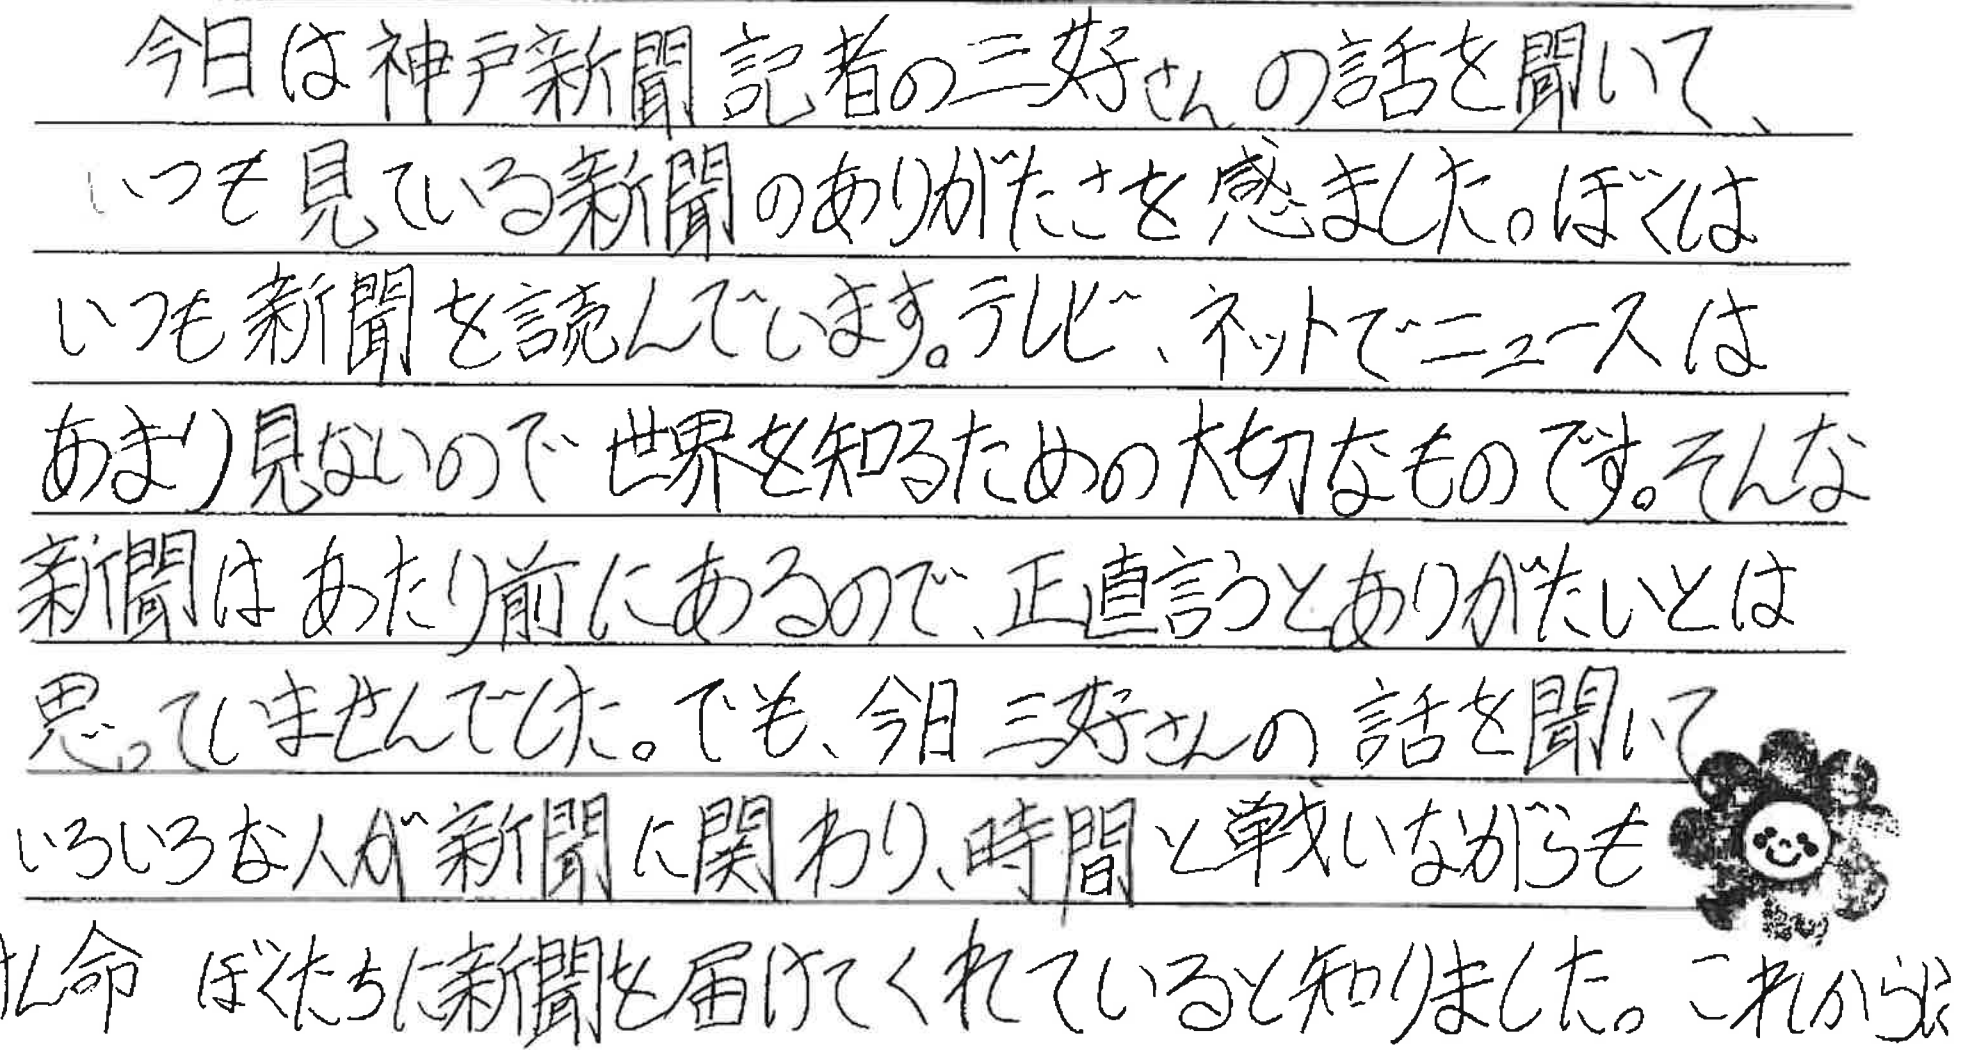 今日は神戸新聞記者の三好さんの話を聞いて、
いつも見ている新聞のありがたさを感ました。ぼくは
いつも新聞を読んでいます。テレビ、ネットでニュースは
あまり見ないので世界を知るための大切なものです。そんな
新聞はあたり前にあるので、正直言うとありがたいとは
思っていませんでした。でも、今日三好さんの話を聞いて
いろいろな人が新聞に関わり、時間と戦いながらも
命 ぼくたちに新聞を届けてくれていると知りました。これからは